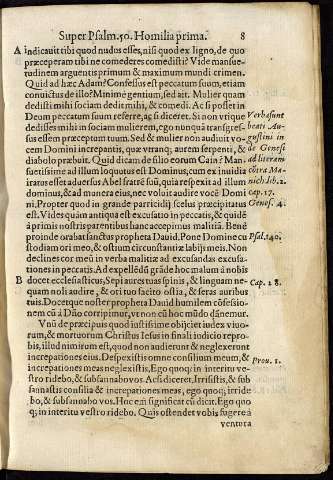 Super Psalm. 50. Homilia prima. 8
A indicauit tibi quod nudus esses, nisi quod ex ligno, de quo
præceperam tibi ne comederes comedisti? Vide mansue-
tudinem arguentis primum & maximum mundi crimen.
Quid ad hæc Adam? Confessus est peccatum suum, etiam
conuictus de illo? Minime gentium, sed ait. Mulier quam
dedisti mihi sociam dedit mihi, & comedi. Ac si posset in
Deum peccatum suum referre, ac si diceret. Si non vtique
dedisses mihi in sociam mulierem, ego nonquā transgres-
sus essem præceptum tuum. Sed & mulier non audiuit vo-
cem Domini increpantis, quæ vtranq; aurem serpenti, &
diabolo præbuit. Quid dicam de filio eorum Cain? Man-
suetissime ad illum loquutus est Dominus, cum ex inuidia
iratus esset aduersus Abel fratrē suū, quia respexit ad illum
dominus, & ad munera eius, nec voluit audire vocē Domi
ni. Propter quod in grande parricidij scelus præcipitatus
est. Vides quàm antiqua est excusatio in peccatis, & quidē
à primis nostris parentibus hanc accepimus malitiā. Bene
proinde orabat sanctus propheta Dauid. Pone Domine cu
stodiam ori meo, & ostium circunstantiæ labijs meis. Non
declines cor meū in verba malitiæ ad excusandas excusa-
tiones in peccatis. Ad expellēdū grāde hoc malum à nobis
B docet ecclesiasticus, Sepi aures tuas spinis, & linguam ne-
quam noli audire, & ori tuo facito ostia, & seras auribus
tuis. Docet quoq; noster propheta Dauid humilem cōfessio-
nem cū à Dño corripimur, vt non cū hoc mūdo dānemur.
Vnū de præcipuis quod iustissime obijciet iudex viuo-
rum, & mortuorum Christus Iesus in finali iudicio repro-
bis, illud nimirum est, quod non audierunt & neglexerunt
increpationes eius. Despexistis omne consilium meum, &
increpationes meas neglexistis. Ego quoq; in interitu ve-
stro ridebo, & subsannabo vos. Ac si diceret. Irrisistis, & sub
sannastis consilia & increpationes meas, ego quoq; irride
bo, & subsannabo vos. Hoc em significat cū dicit. Ego quo
q; in interitu vestro ridebo. Quis ostendet vobis fugere à
ventura
Verba sunt
beati Au-
gustini in
de Genesi
ad literam
cōtra Ma-
nich. lib. 2.
cap. 17.
Genes. 4.
Psal. 140.
Cap. 28.
Prou. 1.